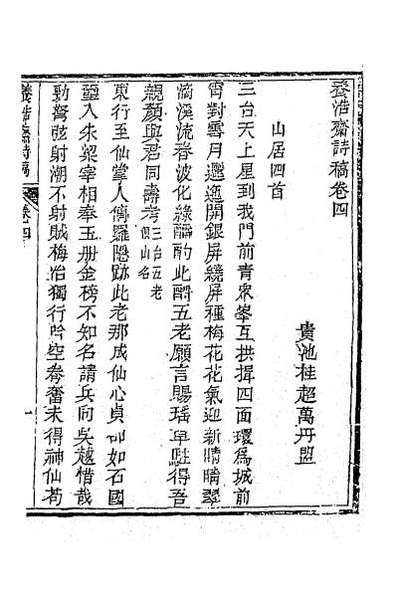 養浩齋詩稿卷四
貴池桂超萬丹盟
山居四首
三台天上星到我門前青眾峯互拱揖四面環為城前
宵對雪月邐迤開銀屏繞屏種梅花花氣迎新晴晴翠
滴溪流春波化綠醽酌此酹五老願言賜瑤草駐得吾
親顏與君同壽考三台五老俱山名
東行至仙掌人傳羅隱跡此老那成仙心貞如石國
璽入朱梁宰相奉玉册金榜不知名請兵向吳越惜哉
勁弩弦射潮不射賊梅冶獨行吟空未得神仙苟
養浩齋詩稿
卷四
一